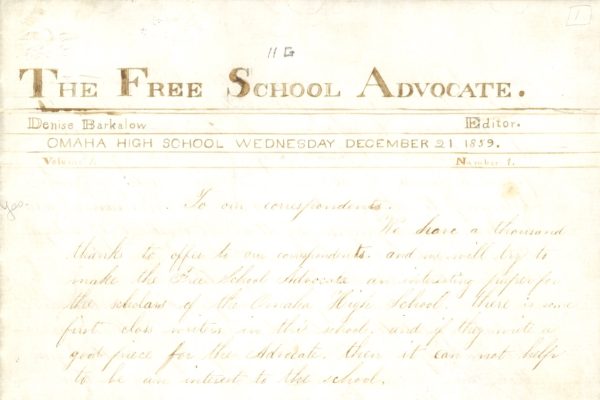 1
H G
THE FREE SCHOOL ADVOCATE.
Denise Barkalow Editor.
OMAHA HIGH SCHOOL WEDNESDAY DECEMBER 21 1859.
Volume 1. Number 1.
To our correspondents.
We have a thousand
thanks to offer to our correspondents. and we will try to
make the Free School Advocate an interesting paper for
the scholars of the Omaha High School. There is some
first class writers in this school. and if they write a
good piece for the Advocate. then it can not help
to be an interest to the school.